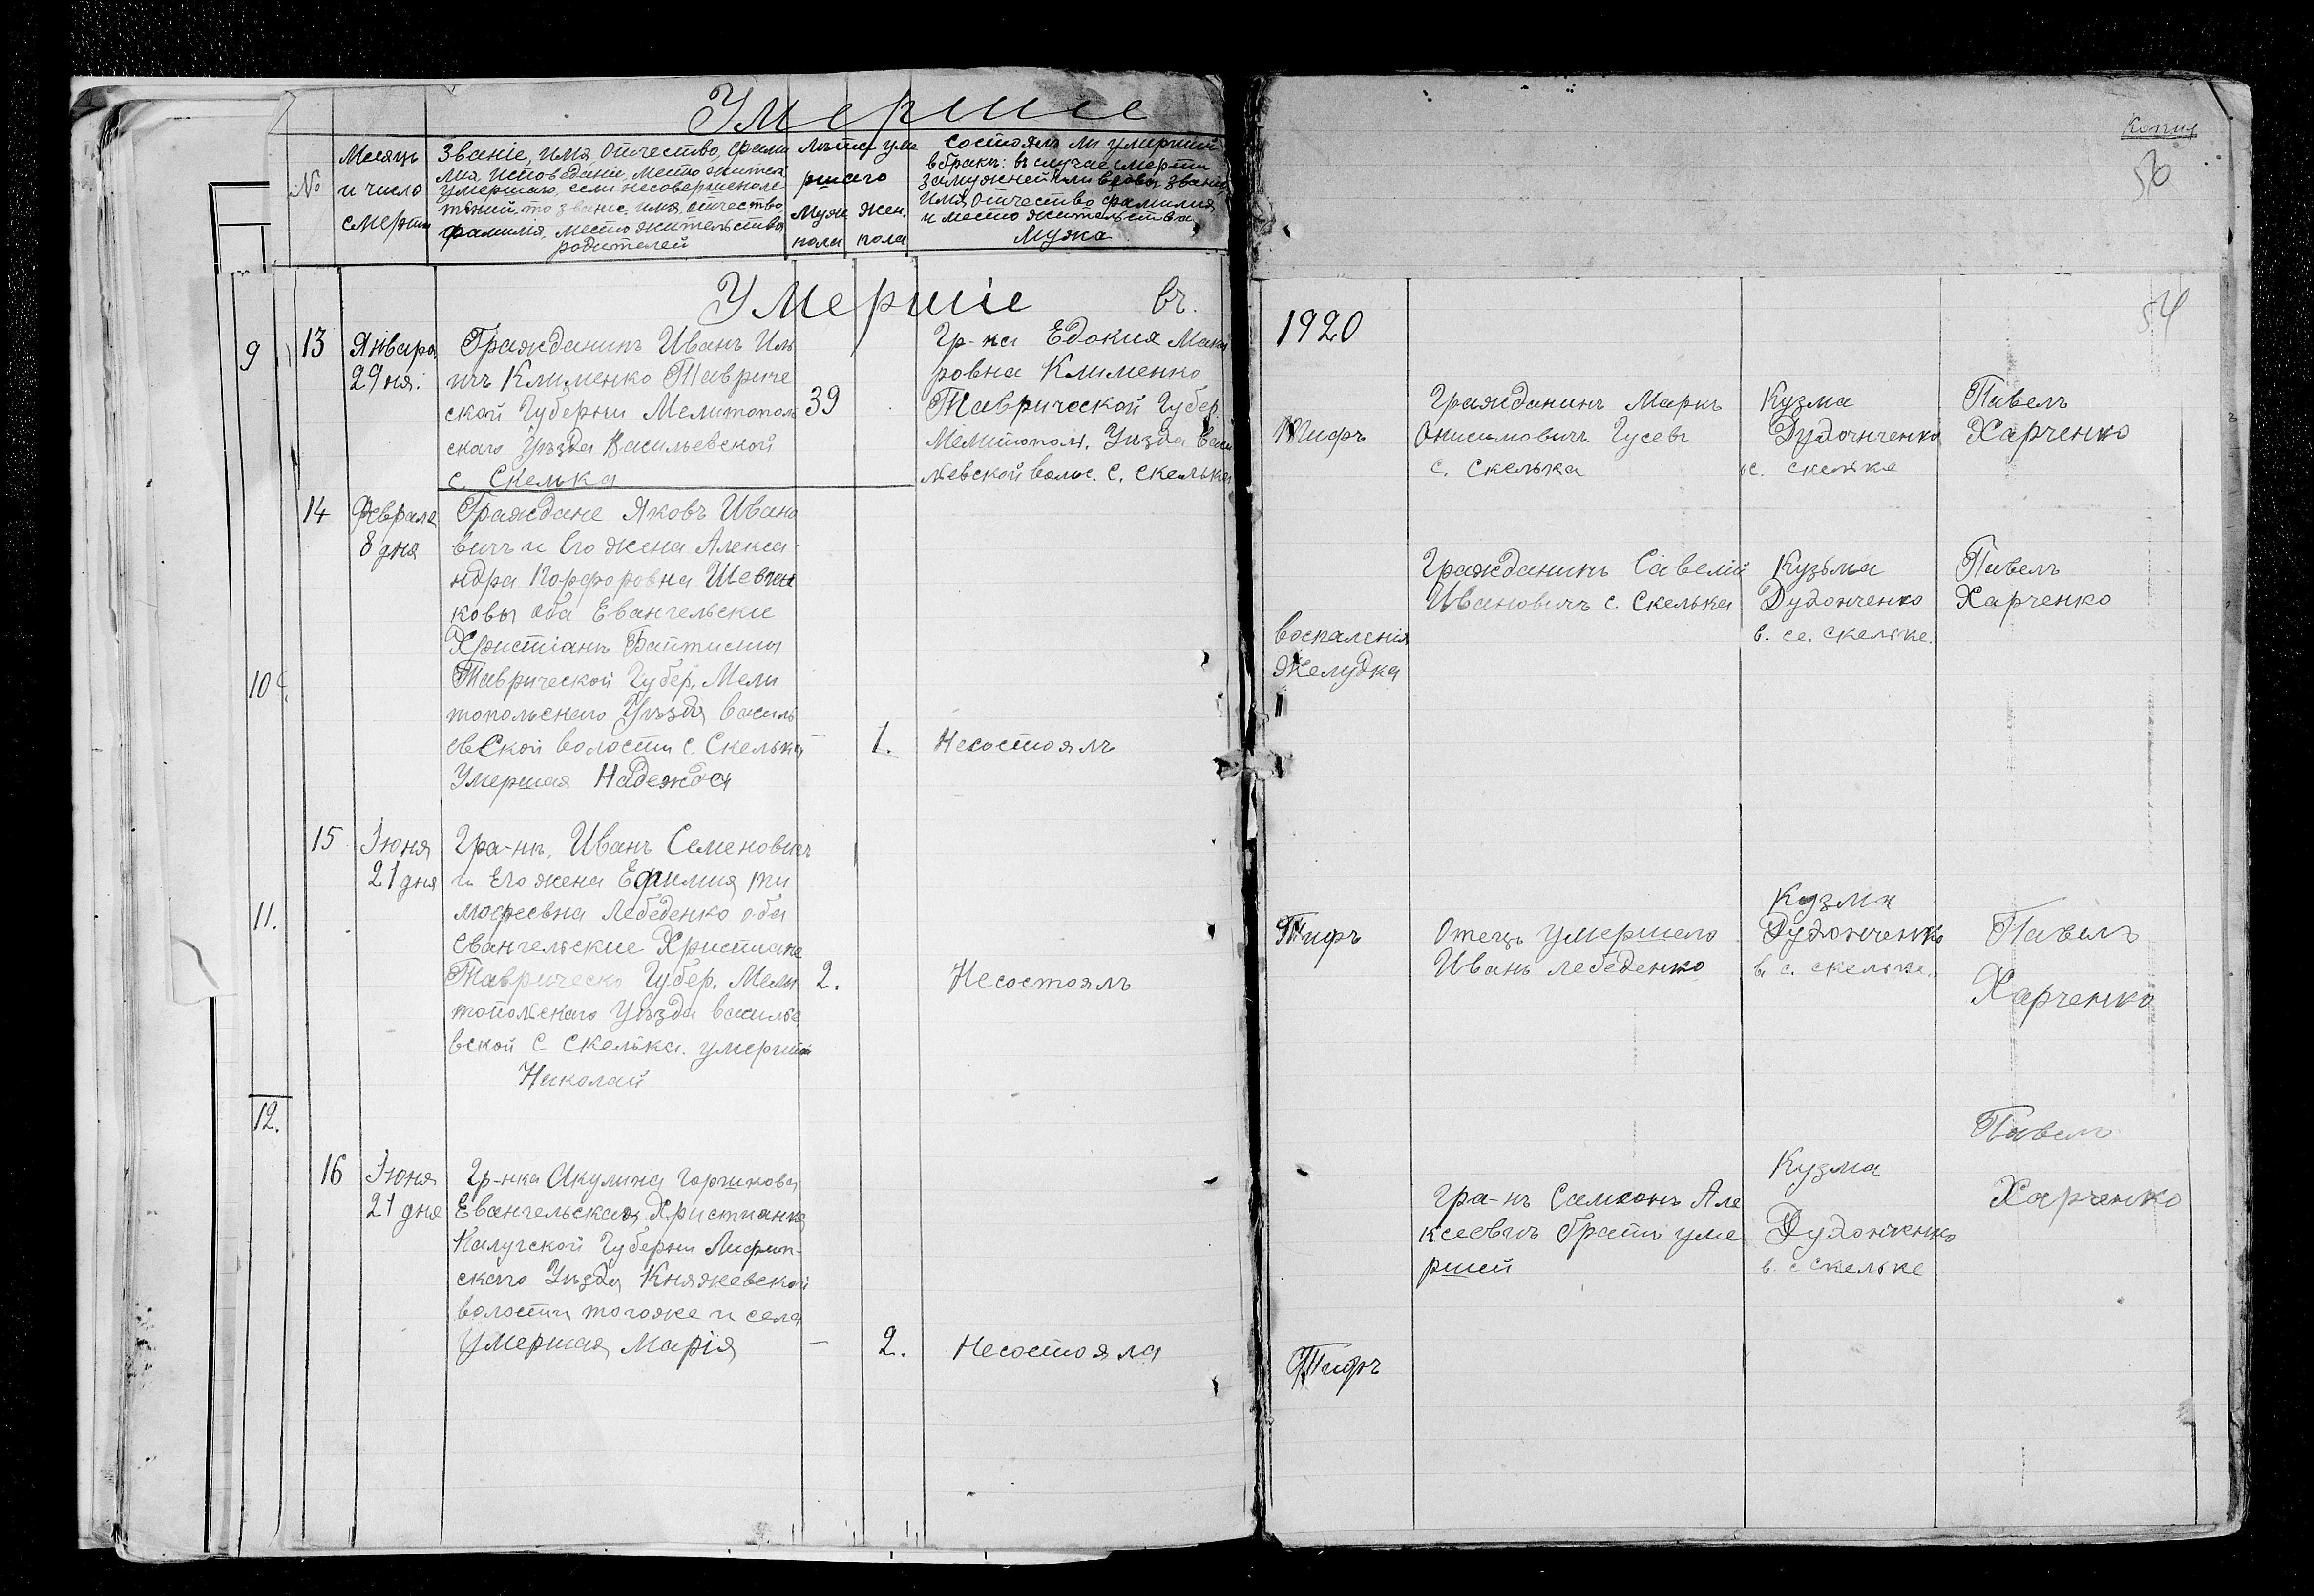 Умершие
№
Месяцъ
и число
смерти
Званіе, имя, отчество, фами
лия, исповеданіе, место жител
умершаго, если несовершеноле
тний, то званіе, имя, отчество,
фамилія, место жительства
родителей
Лѣта уме
ршаго
Муж. Жен.
пола пола
Состоялъ ли умерший
в бракѣ: въ случае смерти
замужней или вдовы званіе
имя, отчество фамилия
и место жительства
Мужа
Копия
50
54
Умершіе въ.
1920
9
13
Января
29 ня.
Гражданинъ Иванъ Иль
ичъ Клименко Тавриче
ской Губерни Мелитополь
скаго Уѣзда Васильевской
с. Скелька
39
Гр-ка Едокия Мака
ровна Клименко
Таврической Губер.
Мелитопол. Уѣзда Васи
левской волос. с. Скелька
Тифъ
Гражданинъ Маркъ
Онисимовичъ Гусевъ
с. Скелька
Кузма
Дудончненко
с. скельке
Павелъ
Харченко
10
14
Февраля
8 дня
Граждане Яковъ Ивано
вичъ и Его жена Алекса
ндра Порфоровна Шевчен
ковы оба Евангельские
Христіанъ Баптисты
Таврической Губер. Мели
топольскаго Уѣзда василь
евСкой волости с. Скелька
Умершая Надежда
–
1.
Несостоялъ
воспаленія
Желудка
Гражданинъ Савелій
Ивановичъ с. Скелька
Кузьма
Дудонченко
в. се. скельке.
Павелъ
Харченко
11.
15
Іюня
21 дня
Гра-нъ. Иванъ Семеновичъ
и Его жена Ефимия Ти
мофеевна Лебеденко оба
Евангельские Христиане
Таврическо Губер. Мели
топольскаго Уѣзда василье
вской с Скелька. умерший
Николай
2.
Несостоялъ
Тифъ
Отецъ умершего
Иванъ Лебеденко
Кузма
Дудонченко
в. с. скельке.
Павелъ
Харченко
12.
16
Іюня
21 дня
Гр-нка Акулина Горшкова
Евангельская Христианка
Калугской Губерни
скаго Уѣзда Княжевской
волости тогоже и села
Умершая Марія
–
2.
Несостояла
Тифъ
Гра-нъ Самсонъ Але
ксеевичъ братъ уме
ршей
Кузма
Дудонченко
в. с Скельке
Павелъ
Харченко